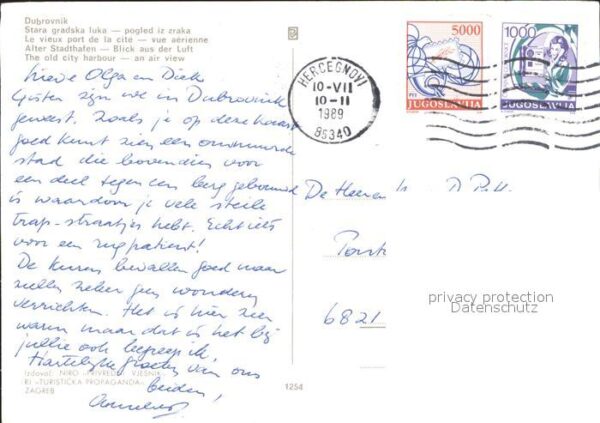 Dubrovnik
Stara gradska luka — pogled iz zraka
Le vieux port de la cite — vue aérienne
Alter Stadthafen — Blick aus der Luft
The old city harbour — an air view
Lieve Olga en Dick
Gisten zijn we in Dubrovnik
geweest. Zoals je op deze kaart
goed kunt zien een ommuurde
stad die bovendien voor
een deel tegen een berg gebouwd
is waardoor je vele steile
trap-straatjes hebt. Echt iets
voor een rugpatient!
De kuren bevallen goed maar
zullen zeker geen wonderen
verrichten. Het is hier zeer
warm maar dat is het bij
jullie ook begreep ik.
Hartelijke groeten van ons
beiden,
Izdavač: NIRO »PRIVREDNI VJESNIK«
RJ »TURISTIČKA PROPAGANDA«
ZAGREB
1254
HERCEGNOVI
10-VII
10-11
1989
85340
5000
PTT
JUGOSLAVIJA
1000
JUGOSLAVIJA
De Heer en
6821
privacy protection
Datenschutz